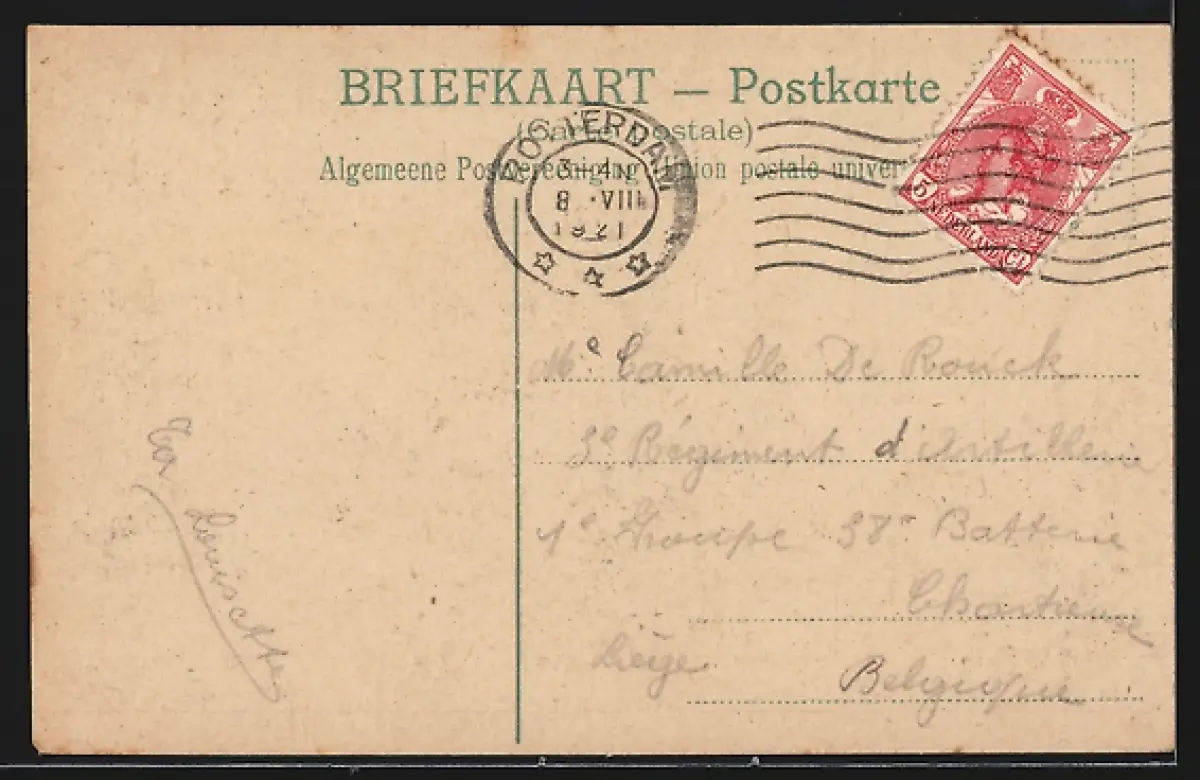 BRIEFKAART — Postkarte
(Carte postale)
Algemeene Postvereeniging Union postale univer
ROTTERDAM
3-4 N
8 VIII
1921
5 NEDERLAND CT
Me Camille De Rouck
3e Régiment d'Artillerie
1e Groupe 38e Batterie
Chartreuse
Liège
Belgique
Louisette